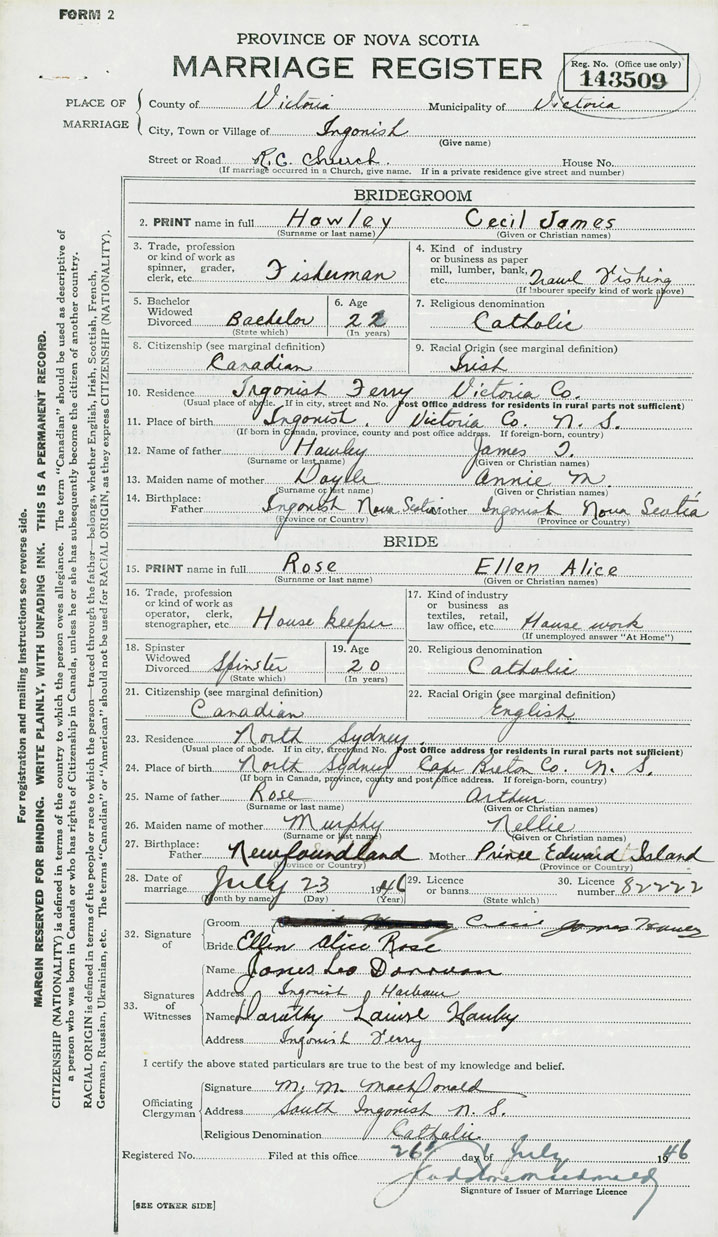 FORM 2
PROVINCE OF NOVA SCOTIA
MARRIAGE REGISTER
Reg. No. (Office use only)
143509
PLACE OF MARRIAGE
County of Victoria Municipality of Victoria
City, Town or Village of Ingonish
(Give name)
Street or Road R.C. Church. House No.
(If marriage occurred in a Church, give name. If in a private residence give street and number)
BRIDEGROOM
2. PRINT name in full Hawley Cecil James
(Surname or last name) (Given or Christian names)
3. Trade, profession or kind of work as spinner, grader, clerk, etc. Fisherman
4. Kind of industry or business as paper mill, lumber, bank, etc. Trawl Fishing
(If labourer specify kind of work above)
5. Bachelor Widowed Divorced Bachelor
(State which)
6. Age 22
(In years)
7. Religious denomination
Catholic
8. Citizenship (see marginal definition)
Canadian
9. Racial Origin (see marginal definition)
Irish
10. Residence Ingonish Ferry Victoria Co.
(Usual place of abode. If in city, street and No. Post Office address for residents in rural parts not sufficient)
11. Place of birth Ingonish. Victoria Co. N. S.
(If born in Canada, province, county and post office address. If foreign-born, country)
12. Name of father Hawley James T.
(Surname or last name) (Given or Christian names)
13. Maiden name of mother Doyle Annie M.
(Surname or last name) (Given or Christian names)
14. Birthplace: Father Ingonish Nova Scotia Mother Ingonish Nova Scotia
(Province or Country) (Province or Country)
BRIDE
15. PRINT name in full Rose Ellen Alice
(Surname or last name) (Given or Christian names)
16. Trade, profession or kind of work as operator, clerk, stenographer, etc House keeper
17. Kind of industry or business as textiles, retail, law office, etc. House work
(If unemployed answer "At Home")
18. Spinster Widowed Divorced Spinster
(State which)
19. Age 20
(In years)
20. Religious denomination
Catholic
21. Citizenship (see marginal definition)
Canadian
22. Racial Origin (see marginal definition)
English
23. Residence North Sydney.
(Usual place of abode. If in city, street and No. Post Office address for residents in rural parts not sufficient)
24. Place of birth North Sydney Cape Breton Co. N. S.
(If born in Canada, province, county and post office address. If foreign-born, country)
25. Name of father Rose Arthur
(Surname or last name) (Given or Christian names)
26. Maiden name of mother Murphy Nellie
(Surname or last name) (Given or Christian names)
27. Birthplace: Father Newfoundland Mother Prince Edward Island
(Province or Country) (Province or Country)
28. Date of marriage July 23 1946
(Month by name) (Day) (Year)
29. Licence or banns
(State which)
30. Licence number 82222
32. Signature of
Groom Cecil James
Bride Ellen Alice Rose
33. Signatures of Witnesses
Name James Leo Donovan
Address Ingonish Harbour
Name Dorathy Louise Hawley
Address Ingonish Ferry
I certify the above stated particulars are true to the best of my knowledge and belief.
Officiating Clergyman
Signature M. M. MacDonald
Address South Ingonish N. S.
Religious Denomination Catholic
Registered No. Filed at this office 26 day of July 1946
Signature of Issuer of Marriage Licence
[SEE OTHER SIDE]
For registration and mailing instructions see reverse side.
MARGIN RESERVED FOR BINDING. WRITE PLAINLY, WITH UNFADING INK. THIS IS A PERMANENT RECORD.
CITIZENSHIP (NATIONALITY) is defined in terms of the country to which the person owes allegiance. The term "Canadian" should be used as descriptive of
a person who was born in Canada or who has rights of Citizenship in Canada, unless he or she has subsequently become the citizen of another country.
RACIAL ORIGIN is defined in terms of the people or race to which the person—traced through the father—belongs, whether English, Irish, Scottish, French,
German, Russian, Ukrainian, etc. The terms "Canadian" or "American" should not be used for RACIAL ORIGIN, as they express CITIZENSHIP (NATIONALITY).